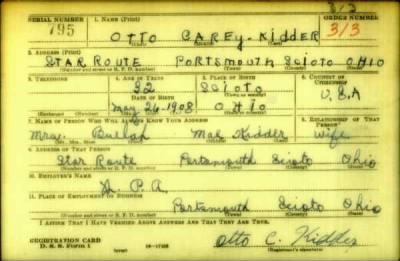 3/3
SERIAL NUMBER 1. NAME (Print) ORDER NUMBER
795 OTTO CAREY KIDDER 3/3
(First) (Middle) (Last)
2. ADDRESS (Print)
STAR ROUTE PORTSMOUTH SCIOTO OHIO
(Number and street or R. F. D. number) (Town) (County) (State)
3. TELEPHONE 4. AGE IN YEARS 5. PLACE OF BIRTH 6. COUNTRY OF CITIZENSHIP
32 SCIOTO
DATE OF BIRTH (Town or county) U.S.A
May 26-1908 OHIO
7. NAME OF PERSON WHO WILL ALWAYS KNOW YOUR ADDRESS 8. RELATIONSHIP OF THAT PERSON
Mrs. Mae Kidder Wife
(Mr., Mrs., Miss) (First) (Middle) (Last)
9. ADDRESS OF THAT PERSON
Star Route Portsmouth Scioto Ohio
(Number and street or R. F. D. number) (Town) (County) (State)
10. EMPLOYER'S NAME
W. P. A.
11. PLACE OF EMPLOYMENT OR BUSINESS
Portsmouth Scioto Ohio
(Number and street or R. F. D. number) (Town) (County) (State)
I AFFIRM THAT I HAVE VERIFIED ABOVE ANSWERS AND THAT THEY ARE TRUE.
REGISTRATION CARD
D. S. S. Form 1 (over) 16-17105 Otto C. Kidder
(Registrant's signature)